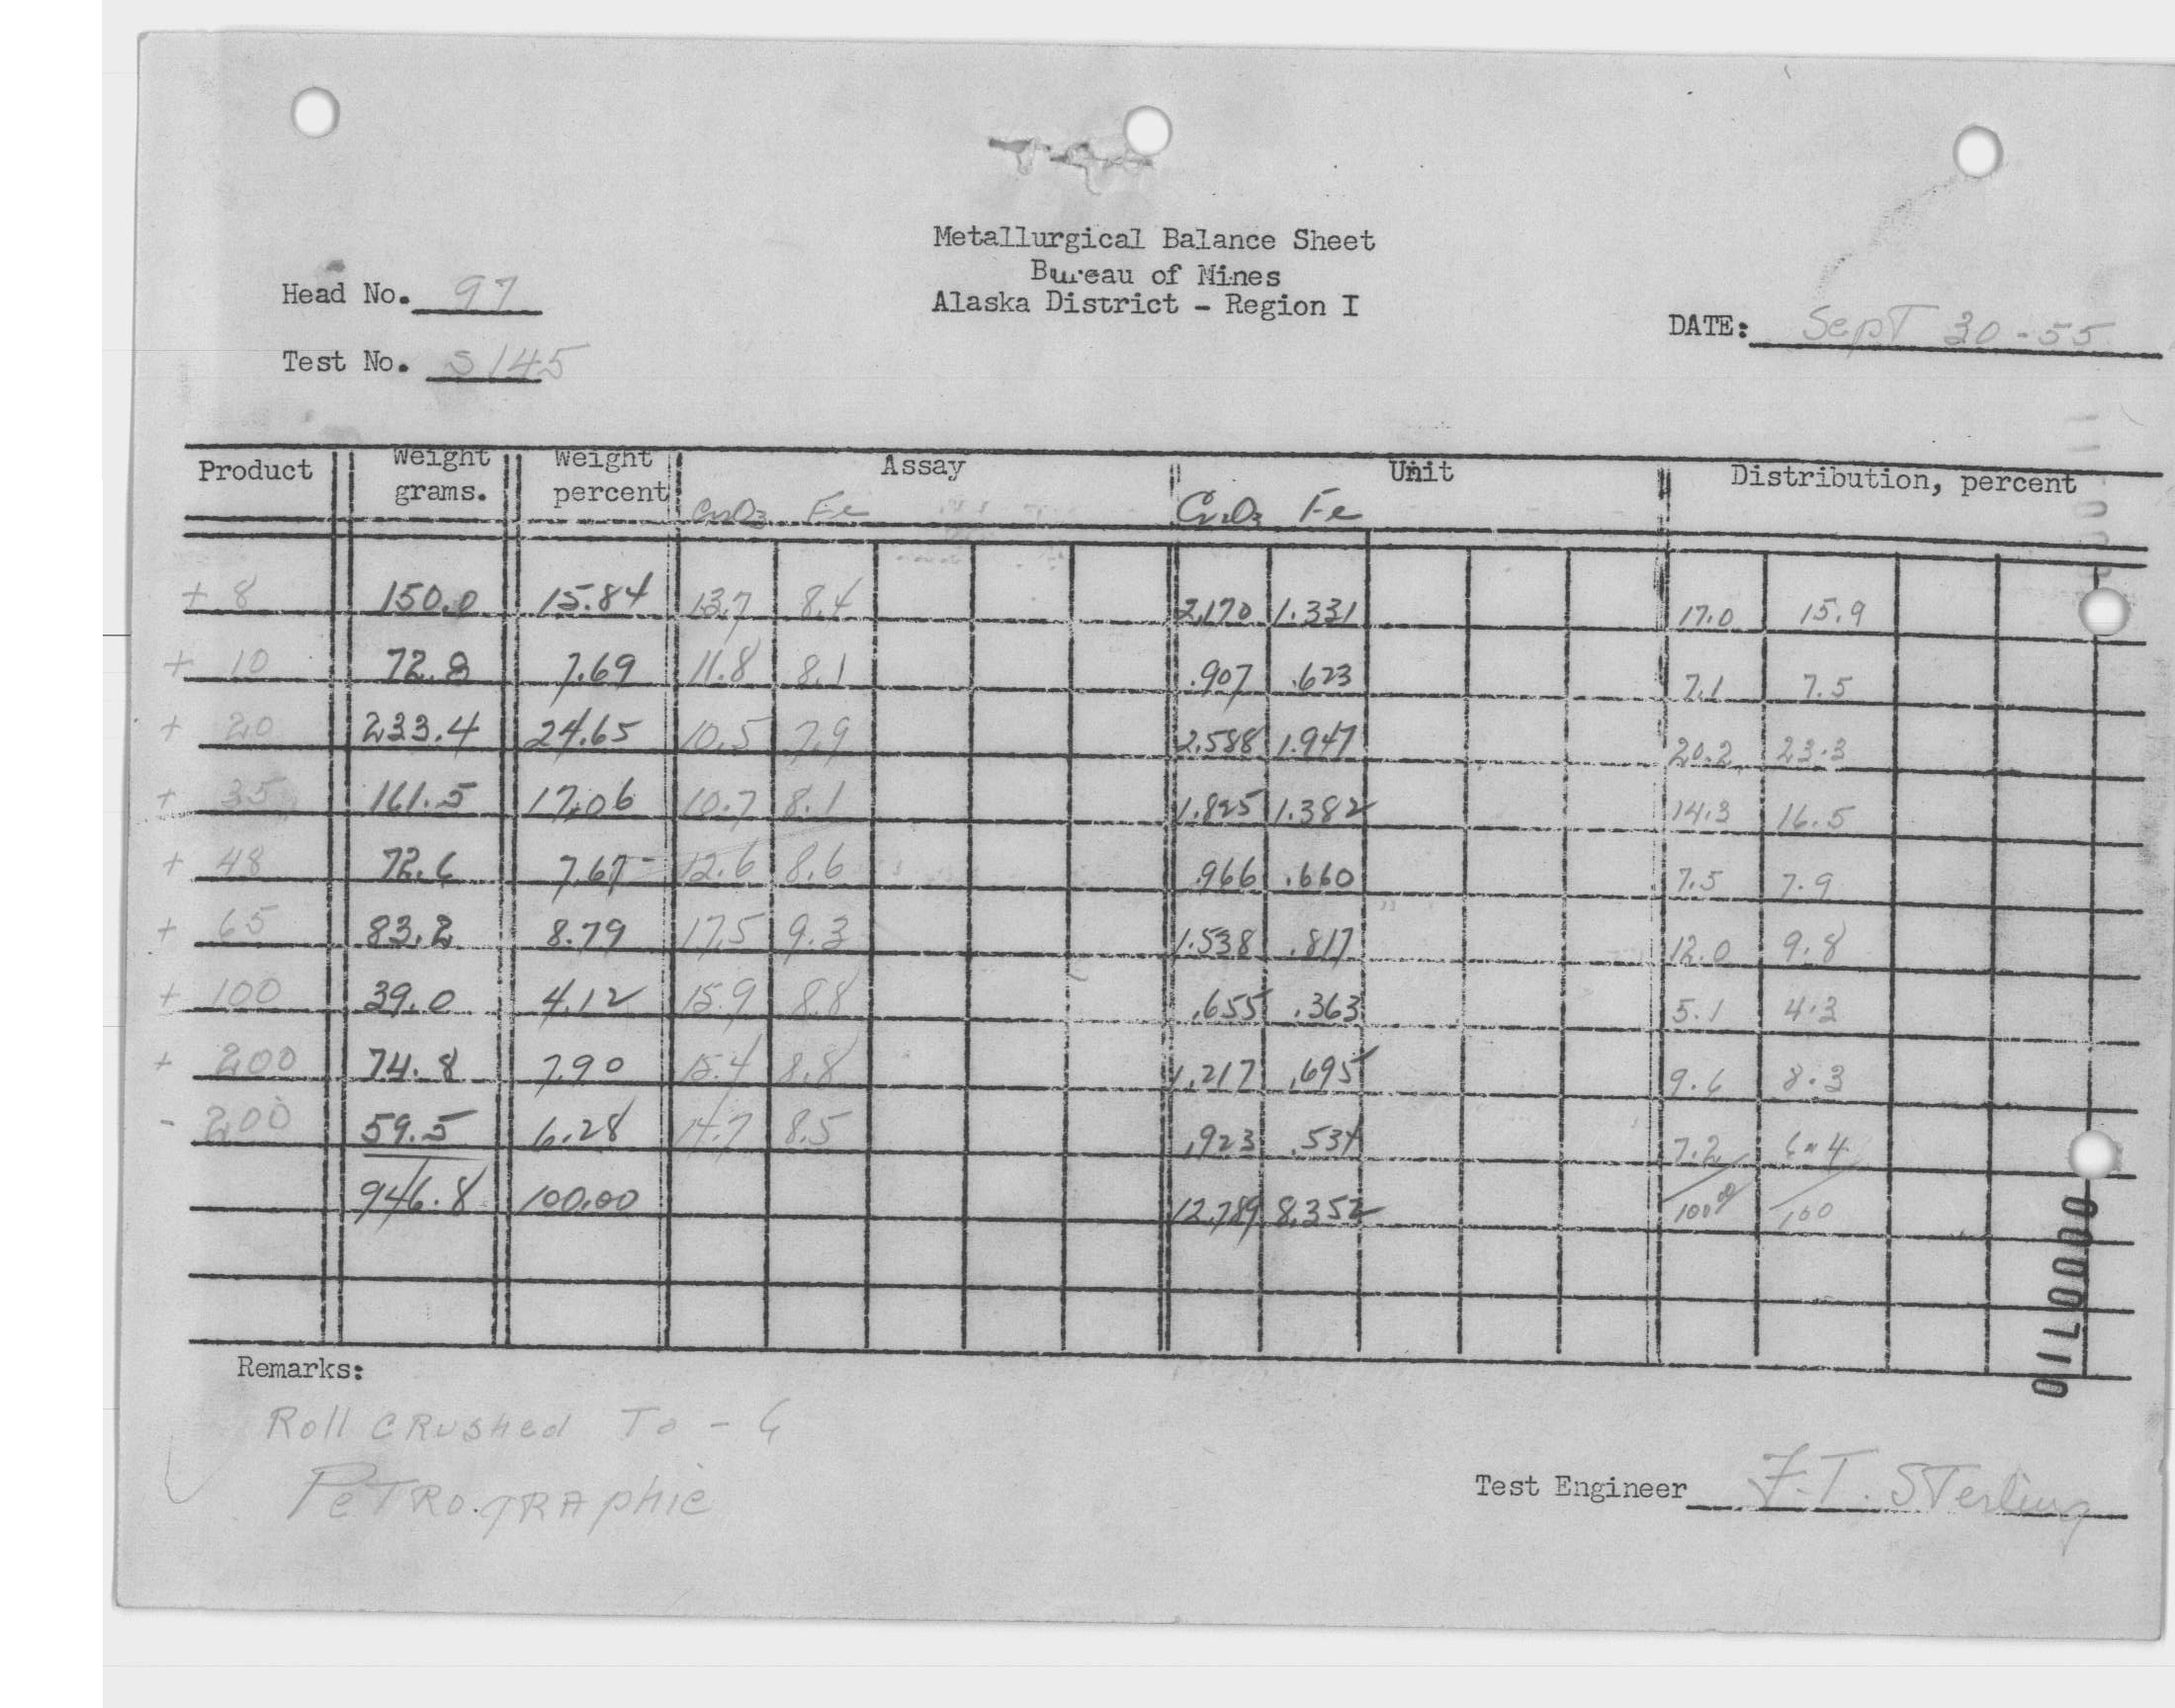 Metallurgical Balance Sheet
Bureau of Mines
Alaska District - Region I
Head No. 97
Test No. S145
DATE: Sept 30-55
Product Weight grams. Weight percent Assay Unit Distribution, percent
Cr2O3 Fe Cr2O3 Fe
+ 8 150.0 15.84 13.7 8.4 2.170 1.331 17.0 15.9
+ 10 72.8 7.69 11.8 8.1 .907 .623 7.1 7.5
+ 20 233.4 24.65 10.5 7.9 2.588 1.947 20.2 23.3
+ 35 161.5 17.06 10.7 8.1 1.825 1.382 14.3 16.5
+ 48 72.6 7.67 12.6 8.6 .966 .660 7.5 7.9
+ 65 83.2 8.79 17.5 9.3 1.538 .817 12.0 9.8
+ 100 39.0 4.12 15.9 8.8 .655 .363 5.1 4.3
+ 200 74.8 7.90 15.4 8.8 1.217 .695 9.6 8.3
- 200 59.5 6.28 14.7 8.5 .923 .534 7.2 6.4
946.8 100.00 12.789 8.352 100.0 100
Remarks:
Roll CRUSHED To - 6
PETROGRAPHIC
Test Engineer F.T. Sterling